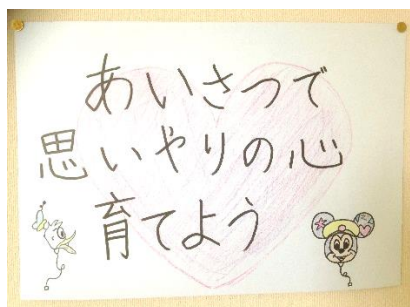 あいさつで
思いやりの心
育てよう